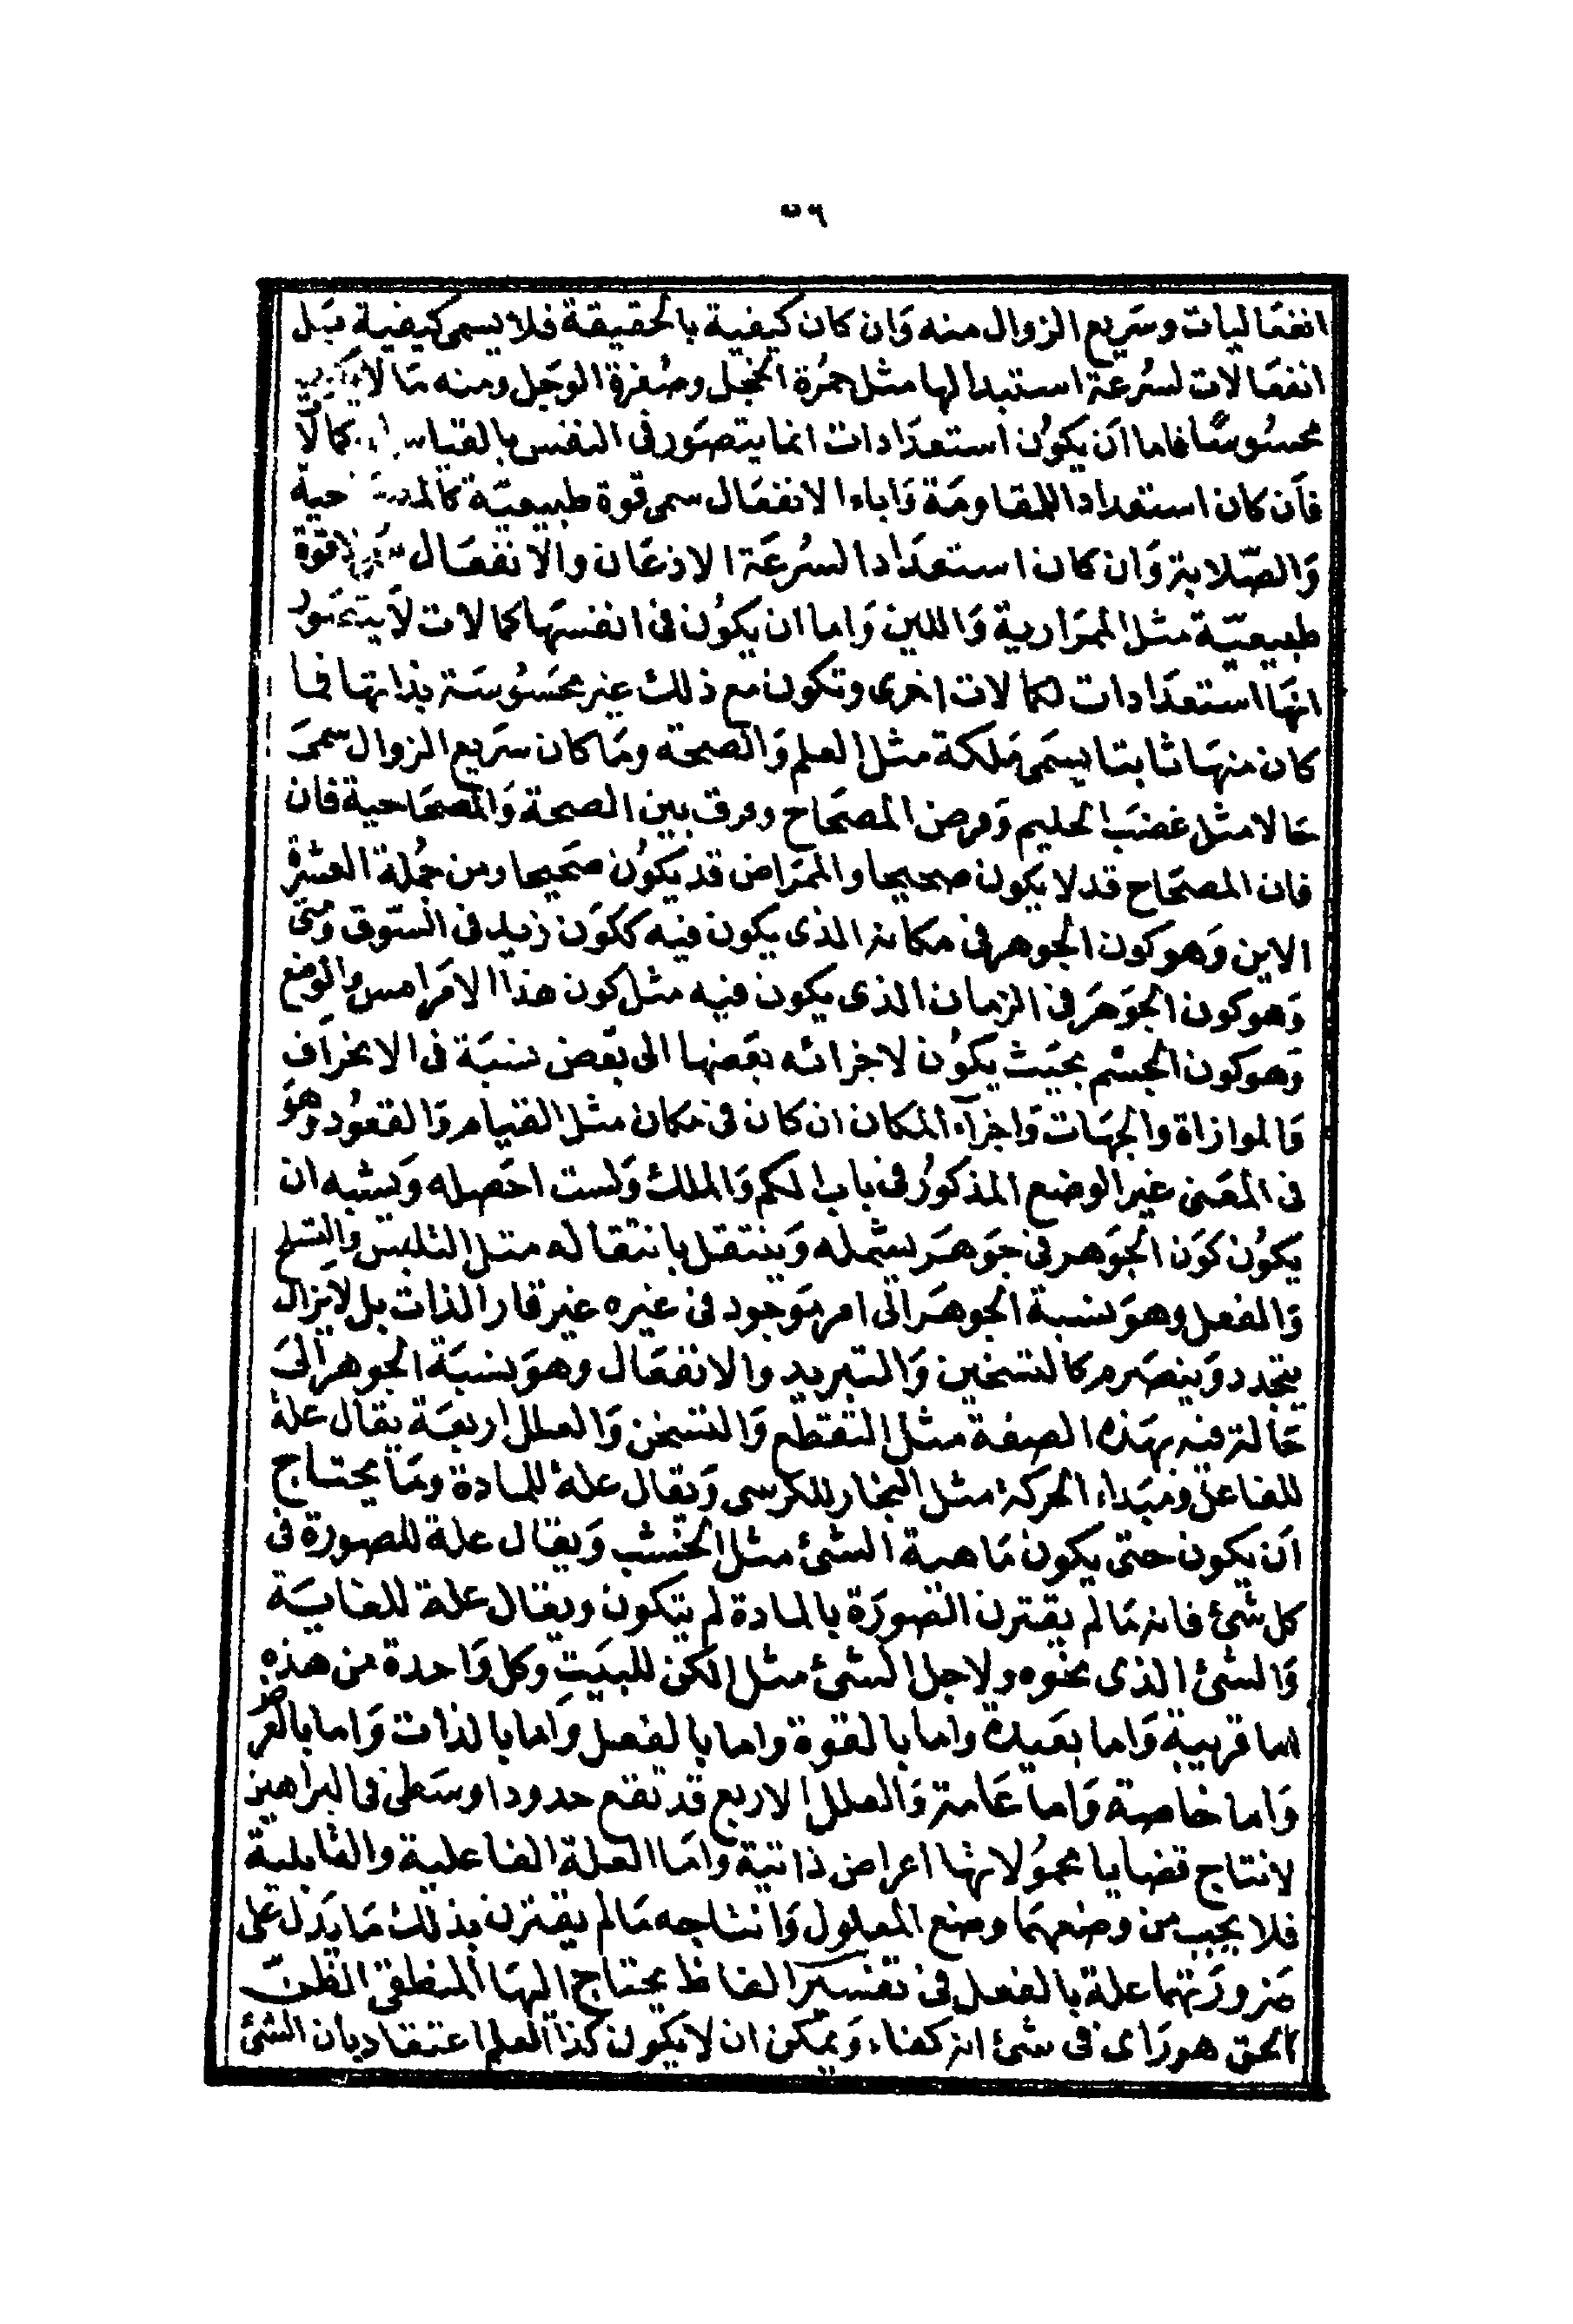 ٥٦
انفعاليات وسريع الزوال منه وان كان كيفية بالحقيقة فلا يسمى كيفية بل
انفعالات لسرعة استبدالها مثل حمرة الخجل وصفرة الوجل ومنه ما لا يكون
محسوسا فاما ان يكون استعدادات انما يتصور في النفس بالقياس كمالات
فان كان استعدادا للمقاومة واباء الانفعال سمى قوة طبيعية كالمصحاحية
والصلابة وان كان استعدادا لسرعة الاذعان والانفعال لا قوة
طبيعية مثل الممراضية واللين واما ان يكون في انفسها كمالات لا يتصور
انها استعدادات لكمالات اخرى وتكون مع ذلك غير محسوسة بذاتها فما
كان منها ثابتا يسمى ملكة مثل العلم والصحة وما كان سريع الزوال سمى
حالا مثل غضب الحليم ومرض المصحاح وفرق بين الصحة والمصحاحية فان
فان المصحاح قد لا يكون صحيحا والممراض قد يكون صحيحا ومن جملة العشرة
الاين وهو كون الجوهر في مكانه الذى يكون فيه ككون زيد في السوق ومتى
وهو كون الجوهر في الزمان الذى يكون فيه مثل كون هذا الامر امس والوضع
وهو كون الجسم بحيث يكون لاجزائه بعضها الى بعض نسبة في الانحراف
والموازاة والجهات واجزاء المكان ان كان في مكان مثل القيام والقعود وهو
في المعنى غير الوضع المذكور في باب الكم والملك ولست احصله ويشبه ان
يكون كون الجوهر في جوهر يشمله وينتقل بانتقاله مثل التلبس والتسلح
والفعل وهو نسبة الجوهر الى امر موجود في غيره غير قار الذات بل لا يزال
يتجدد وينصرم كالتسخين والتبريد والانفعال وهو نسبة الجوهر الى
حالة فيه بهذه الصفة مثل التقطع والتسخن والعلل اربعة يقال علة
للفاعل ومبداء الحركة مثل النجار للكرسى ويقال علة للمادة وما يحتاج
ان يكون حتى يكون ماهية الشئ مثل الخشب ويقال علة للصورة في
كل شئ فانه ما لم يقترن الصورة بالمادة لم يتكون ويقال علة للغاية
والشئ الذى نحوه ولاجل الشئ مثل الكن للبيت وكل واحدة من هذه
اما قريبة واما بعيدة واما بالقوة واما بالفعل واما بالذات واما بالعرض
واما خاصة واما عامة والعلل الاربع قد تقع حدودا وسطى في البراهين
لانتاج قضايا محمولاتها اعراض ذاتية واما العلة الفاعلية والقابلية
فلا يجب من وضعهما وضع المعلول وانتاجه ما لم يقترن بذلك ما يدل على
ضرورتهما علة بالفعل في تفسير الفاظ يحتاج اليها المنطقى الظن
الحق هو راى في شئ انه كذا ويمكن ان لا يكون كذا العلم اعتقاد بان الشئ